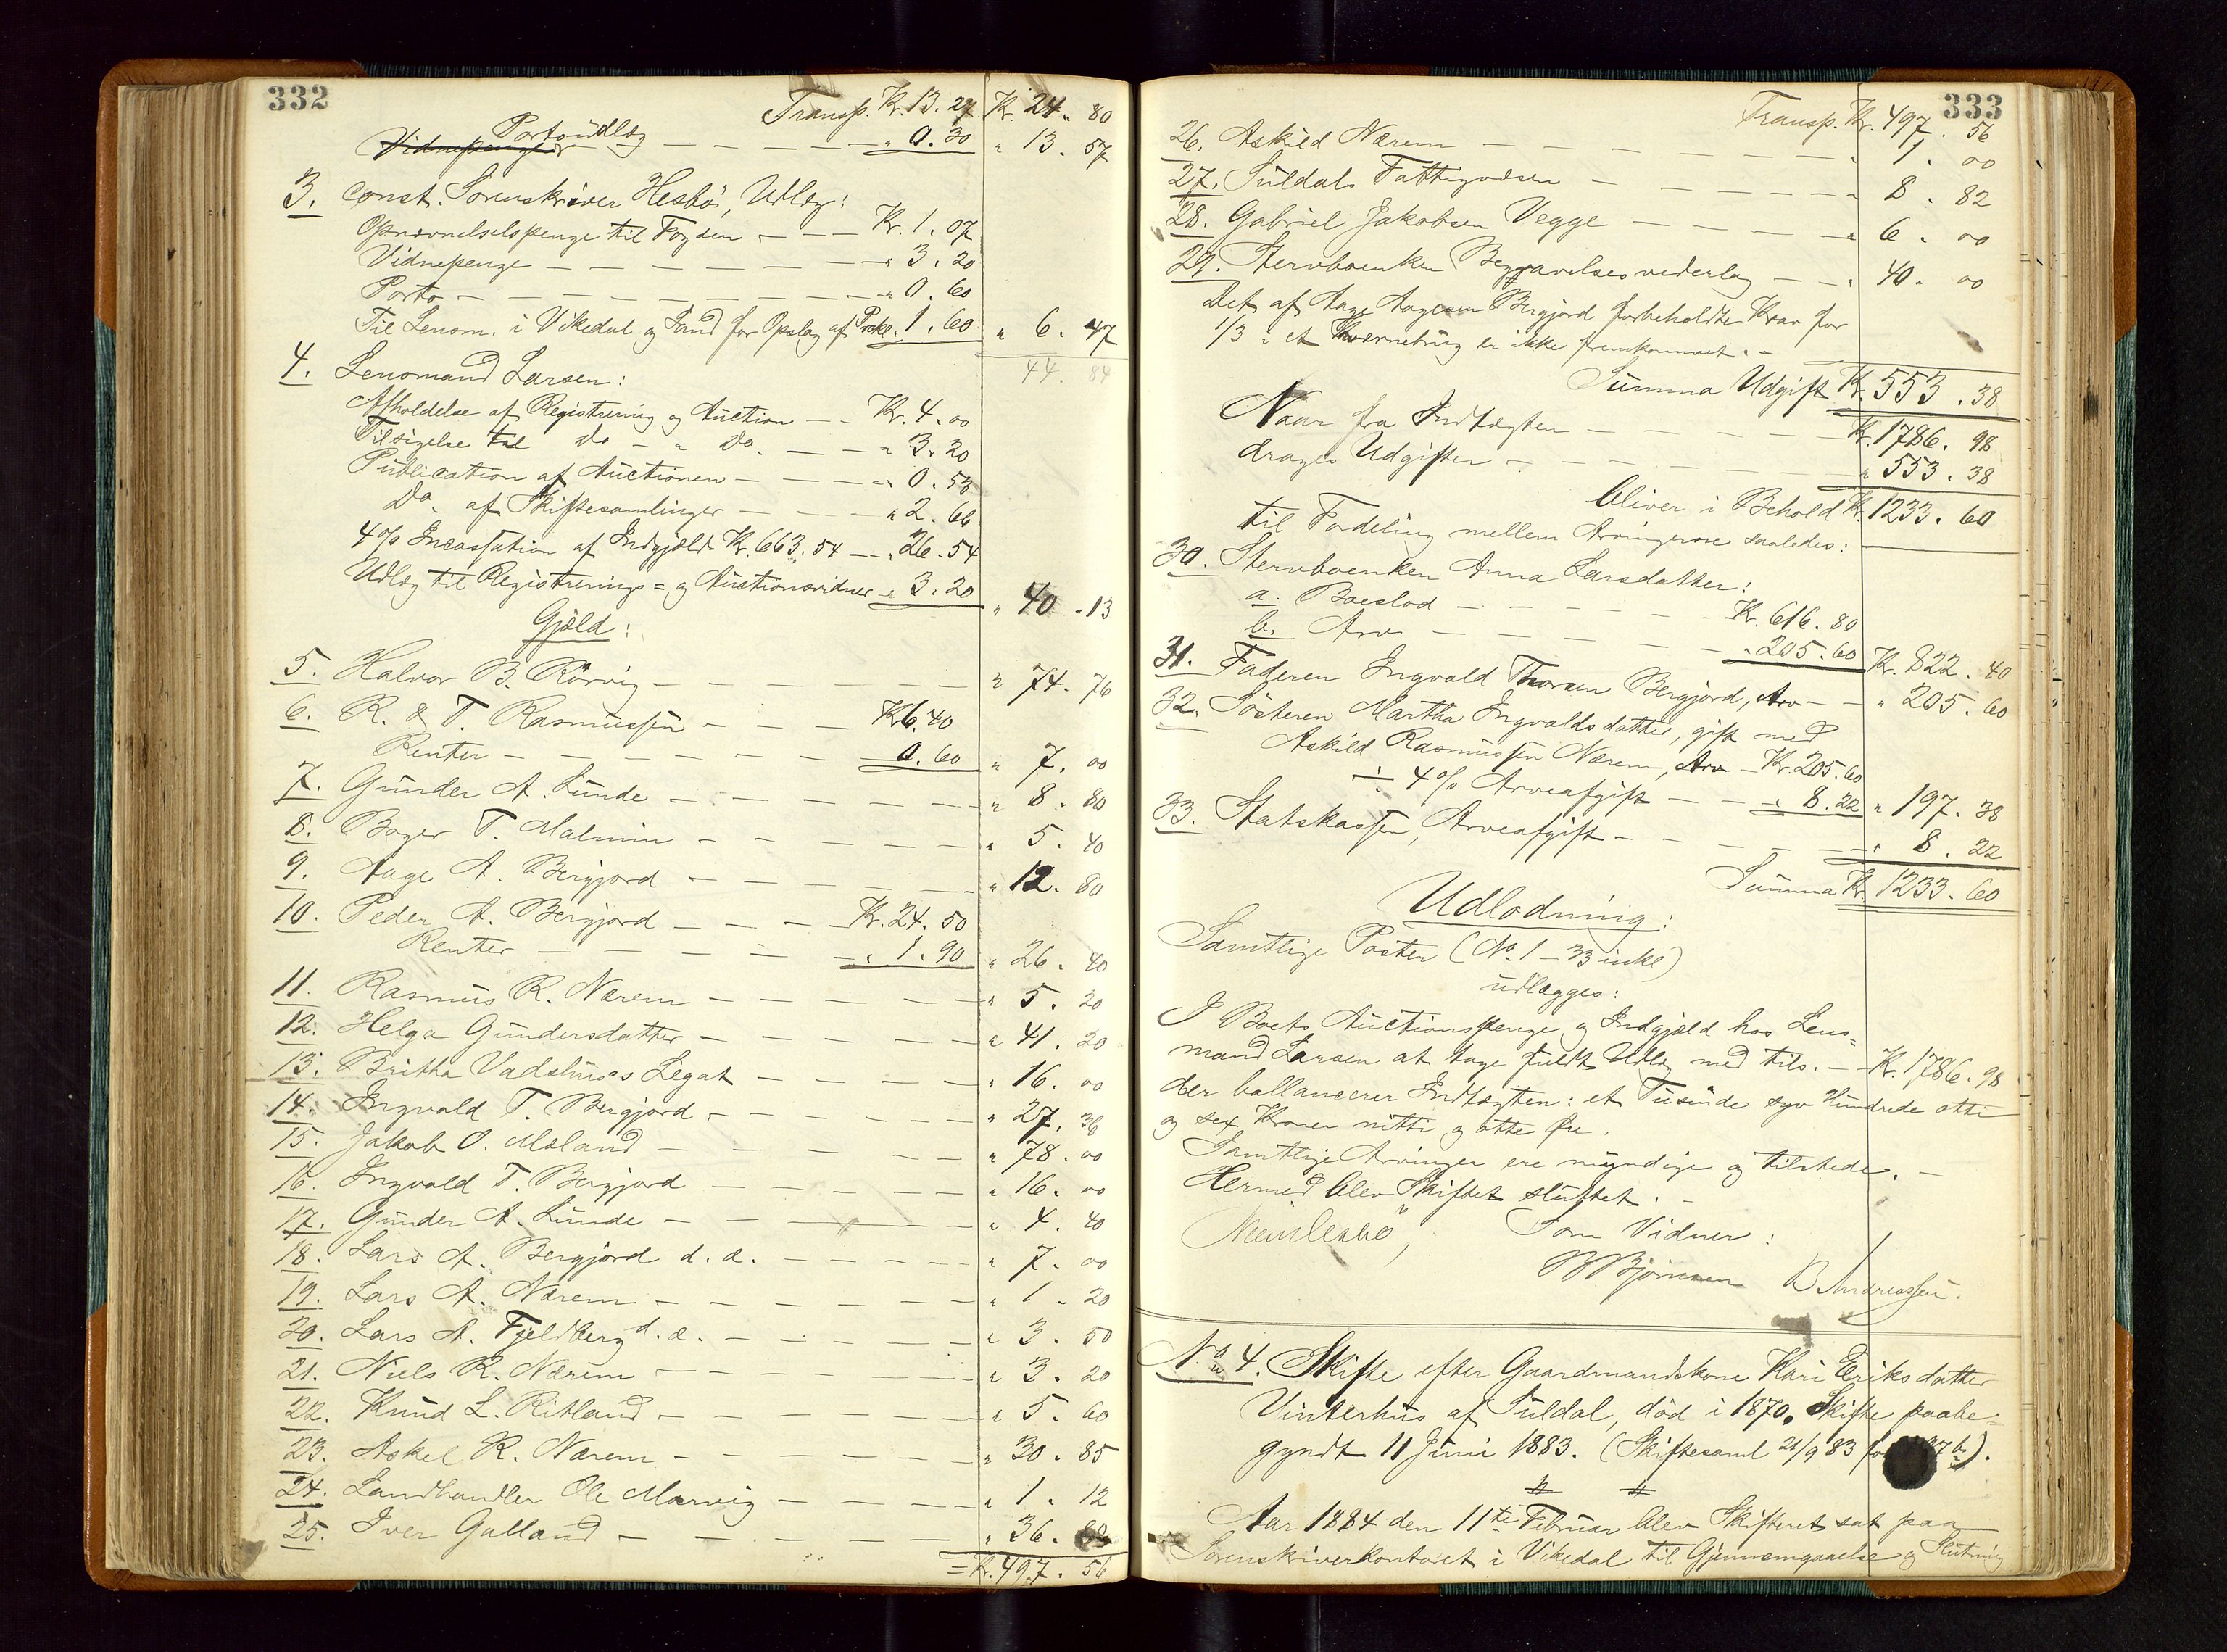 332
Transp. Kr. 13.27 Kr. 24. 80
Vidnepenge Portoudlæg — — — " 0.30 " 13. 57
3. const. Sorenskriver Hesbö, Udlæg:
Opnævnelsespenge til Fogden — — Kr. 1.07
Vidnepenge — — — — — " 3.20
Porto — — — — — — " 0.60
Til Lensm. i Vikedal og Sand for Opslag af Prokl. 1.60 " 6. 47
44. 84
4. Lensmand Larsen:
Afholdelse af Registrering og Auction — — Kr. 4.00
Tilsigelse til do — " Do. — — " 3.20
Publication af Auctionen — — — " 0.53
Do. af Skiftesamlinger — — — " 2.66
4 % Incassation af Indgjæld Kr. 663.54 — " 26.54
Udlæg til Registrerings= og Auctionsvidner " 3.20 " 40. 13
Gjæld:
5. Halvor B. Rörvig — — — — " 74. 76
6. R. & T. Rasmussen — — — Kr. 6.40
Renter — — — — — 0.60 " 7. 00
7. Gunder A. Lunde — — — — " 8. 80
8. Boger T. Malmin — — — — " 5. 40
9. Aage A. Bergjord — — — — " 12. 80
10. Peder A. Bergjord — — — Kr. 24.50
Renter — — — — — " 1.90 " 26. 40
11. Rasmus R. Nærem — — — — " 5. 20
12. Helga Gundersdatter — — — — " 41. 20
13. Britha Vadshus's Legat — — — " 16. 00
14. Ingvald T. Bergjord — — — — " 27. 36
15. Jakob O. Mæland — — — — " 78. 00
16. Ingvald T. Bergjord — — — — " 16. 00
17. Gunder A. Lunde — — — — " 4. 40
18. Lars A. Bergjord d. æ. — — — " 7. 00
19. Lars A. Nærem — — — — " 1. 20
20. Lars A. Fjeldberg d. æ. — — — " 3. 50
21. Niels R. Nærem — — — — " 3. 20
22. Knud L. Ritland — — — — " 5. 60
23. Askel R. Nærem — — — — " 30. 85
24. Landhandler Ole Marvig — — — " 1. 12
25. Iver Galland — — — — " 36.
= Kr. 497. 56
333
Transp. Kr. 497. 56
26. Askild Nærem — — — — " 1. 00
27. Suldals Fattigvæsen — — — — " 8. 82
28. Gabriel Jakobsen Vegge — — — " 6. 00
29. Stervboenken Begravelsesvederlag — — " 40. 00
Det af Aage Aagesen Bergjord forbeholdte Krav for
1/3 i et Kværnebrug er ikke fremkommet. —
Summa Udgift Kr. 553. 38
Naar fra Indtægten — — — — Kr. 1786. 98
drages Udgifter — — — — " 553. 38
bliver i Behold Kr. 1233. 60
til Fordeling mellem Arvingerne saaledes:
30. Stervboenken Anna Larsdatter:
a. Boeslod — — — — Kr. 616.80
b. Arv — — — — " 205.60 Kr. 822. 40
31. Faderen Ingvald Thorsen Bergjord, Arv — — " 205. 60
32. Sösteren Martha Ingvaldsdatter, gift med
Askild Rasmussen Nærem, Arv — Kr. 205.60
÷ 4 % Arveafgift — — " 8.22 " 197. 38
33. Statskassen, Arveafgift — — — — " 8. 22
Summa Kr. 1233. 60
Udlodning:
Samtlige Poster (No. 1 — 33 inkl)
udlægges:
I Boets Auctionspenge og Indgjæld hos Lens=
mand Larsen at tage fuldt Udlæg med tils. — Kr. 1786. 98
der ballancerer Indtægten: et Tusinde syv Hundrede otti
og sex Kroner nitti og otte Öre.
Samtlige Arvinger ere myndige og tilstede. —
Hermed blev Skiftet sluttet. —
Som Vidner:
B Bjørnsen B. Andreassen.
No. 4. Skifte efter Gaardmandskone Kari Eriksdatter
Vinterhus af Suldal, död i 1870. Skifte paabe=
gyndt 11 Juni 1883. (Skiftesaml 21/9 83 fo 7 b).
Aar 1884 den 11te Februar blev Skifteret sat paa
Sorenskriverkontoret i Vikedal til Gjennemgaaelse og Slutning